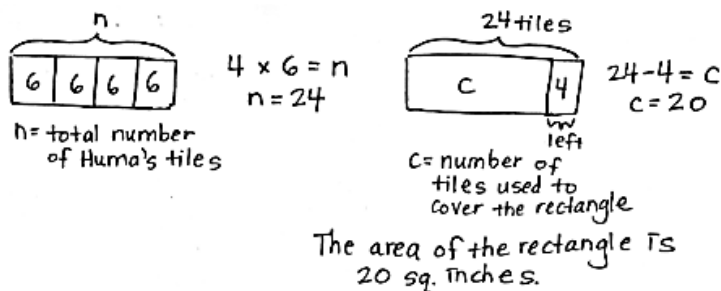 n
6 6 6 6
4 × 6 = n
n = 24
n = total number
of Huma's tiles
24 tiles
C 4
left
24-4 = C
C = 20
C = number of
tiles used to
cover the rectangle
The area of the rectangle is
20 sq. inches.